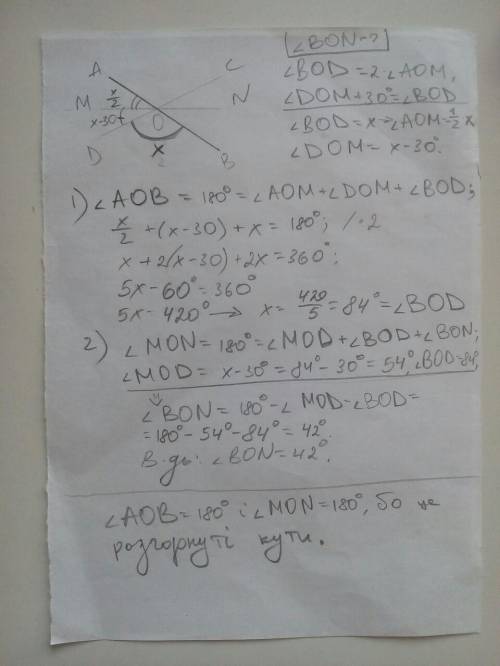 ∠BON-?
A C
∠BOD = 2·∠AOM,
M x/2 N
∠DOM+30°=∠BOD
x-30° O
∠BOD = x → ∠AOM = 1/2 x
D x B
∠DOM = x-30°.
1) ∠AOB = 180° = ∠AOM + ∠DOM + ∠BOD;
x/2 + (x-30) + x = 180°; /·2
x + 2(x-30) + 2x = 360°;
5x - 60° = 360°
5x = 420° → x = 420/5 = 84° = ∠BOD
2) ∠MON = 180° = ∠MOD + ∠BOD + ∠BON;
∠MOD = x-30° = 84° - 30° = 54°, ∠BOD = 84°,
⇓
∠BON = 180° - ∠MOD - ∠BOD =
= 180° - 54° - 84° = 42°.
В-дь: ∠BON = 42°.
∠AOB = 180° і ∠MON = 180°, бо це
розгорнуті кути.